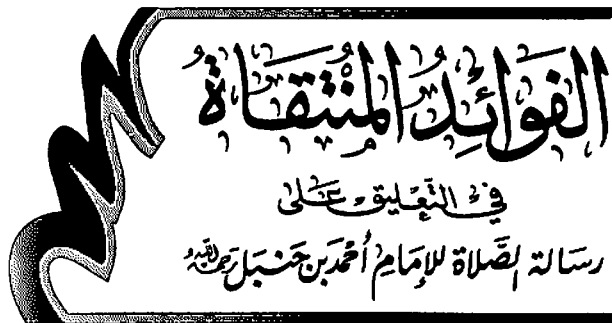 الفَوَائِدُ المُنْتَقَاةُ
في التَّعليق عَلى
رسَالة الصَّلاة للإمَامِ أحْمَد بن حَنبَل رَحِمَهُ اللَّهُ